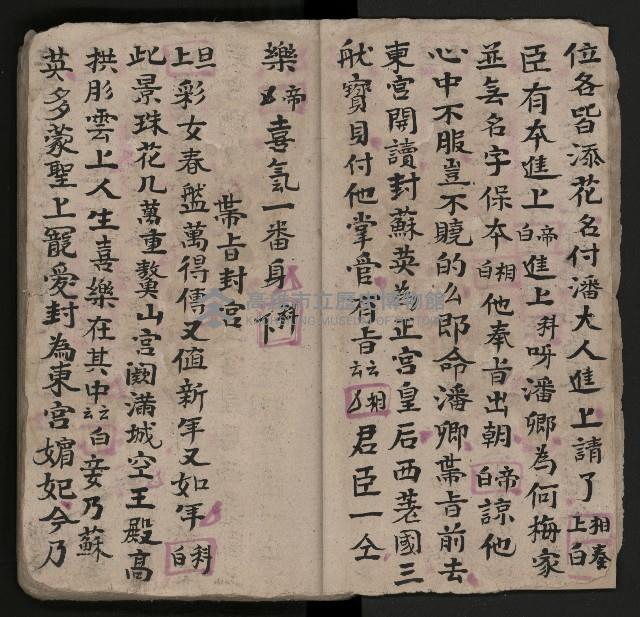 位各皆添花名付潘大人進上請了相奏上白
臣有本進上帝白進上科呀潘卿為何梅家
並無名字保本相白他奉旨出朝帝白諒他
心中不服豈不曉的么即命潘卿帶旨前去
東宮開讀封蘇英為正宮皇后西差國三
船寶貝付他掌管有旨云云相君臣一仝
樂帝喜氣一番身科下
帶旨封宮
旦上彩女春盤萬得傳又值新年又如年科白
此景珠花几萬重鰲山宮闕滿城空王殿高
拱彤雲上人生喜樂在其中云云白妾乃蘇
英多蒙聖上寵愛封為東宮媚妃今乃
高雄市立歷史博物館
KAOHSIUNG MUSEUM OF HISTORY